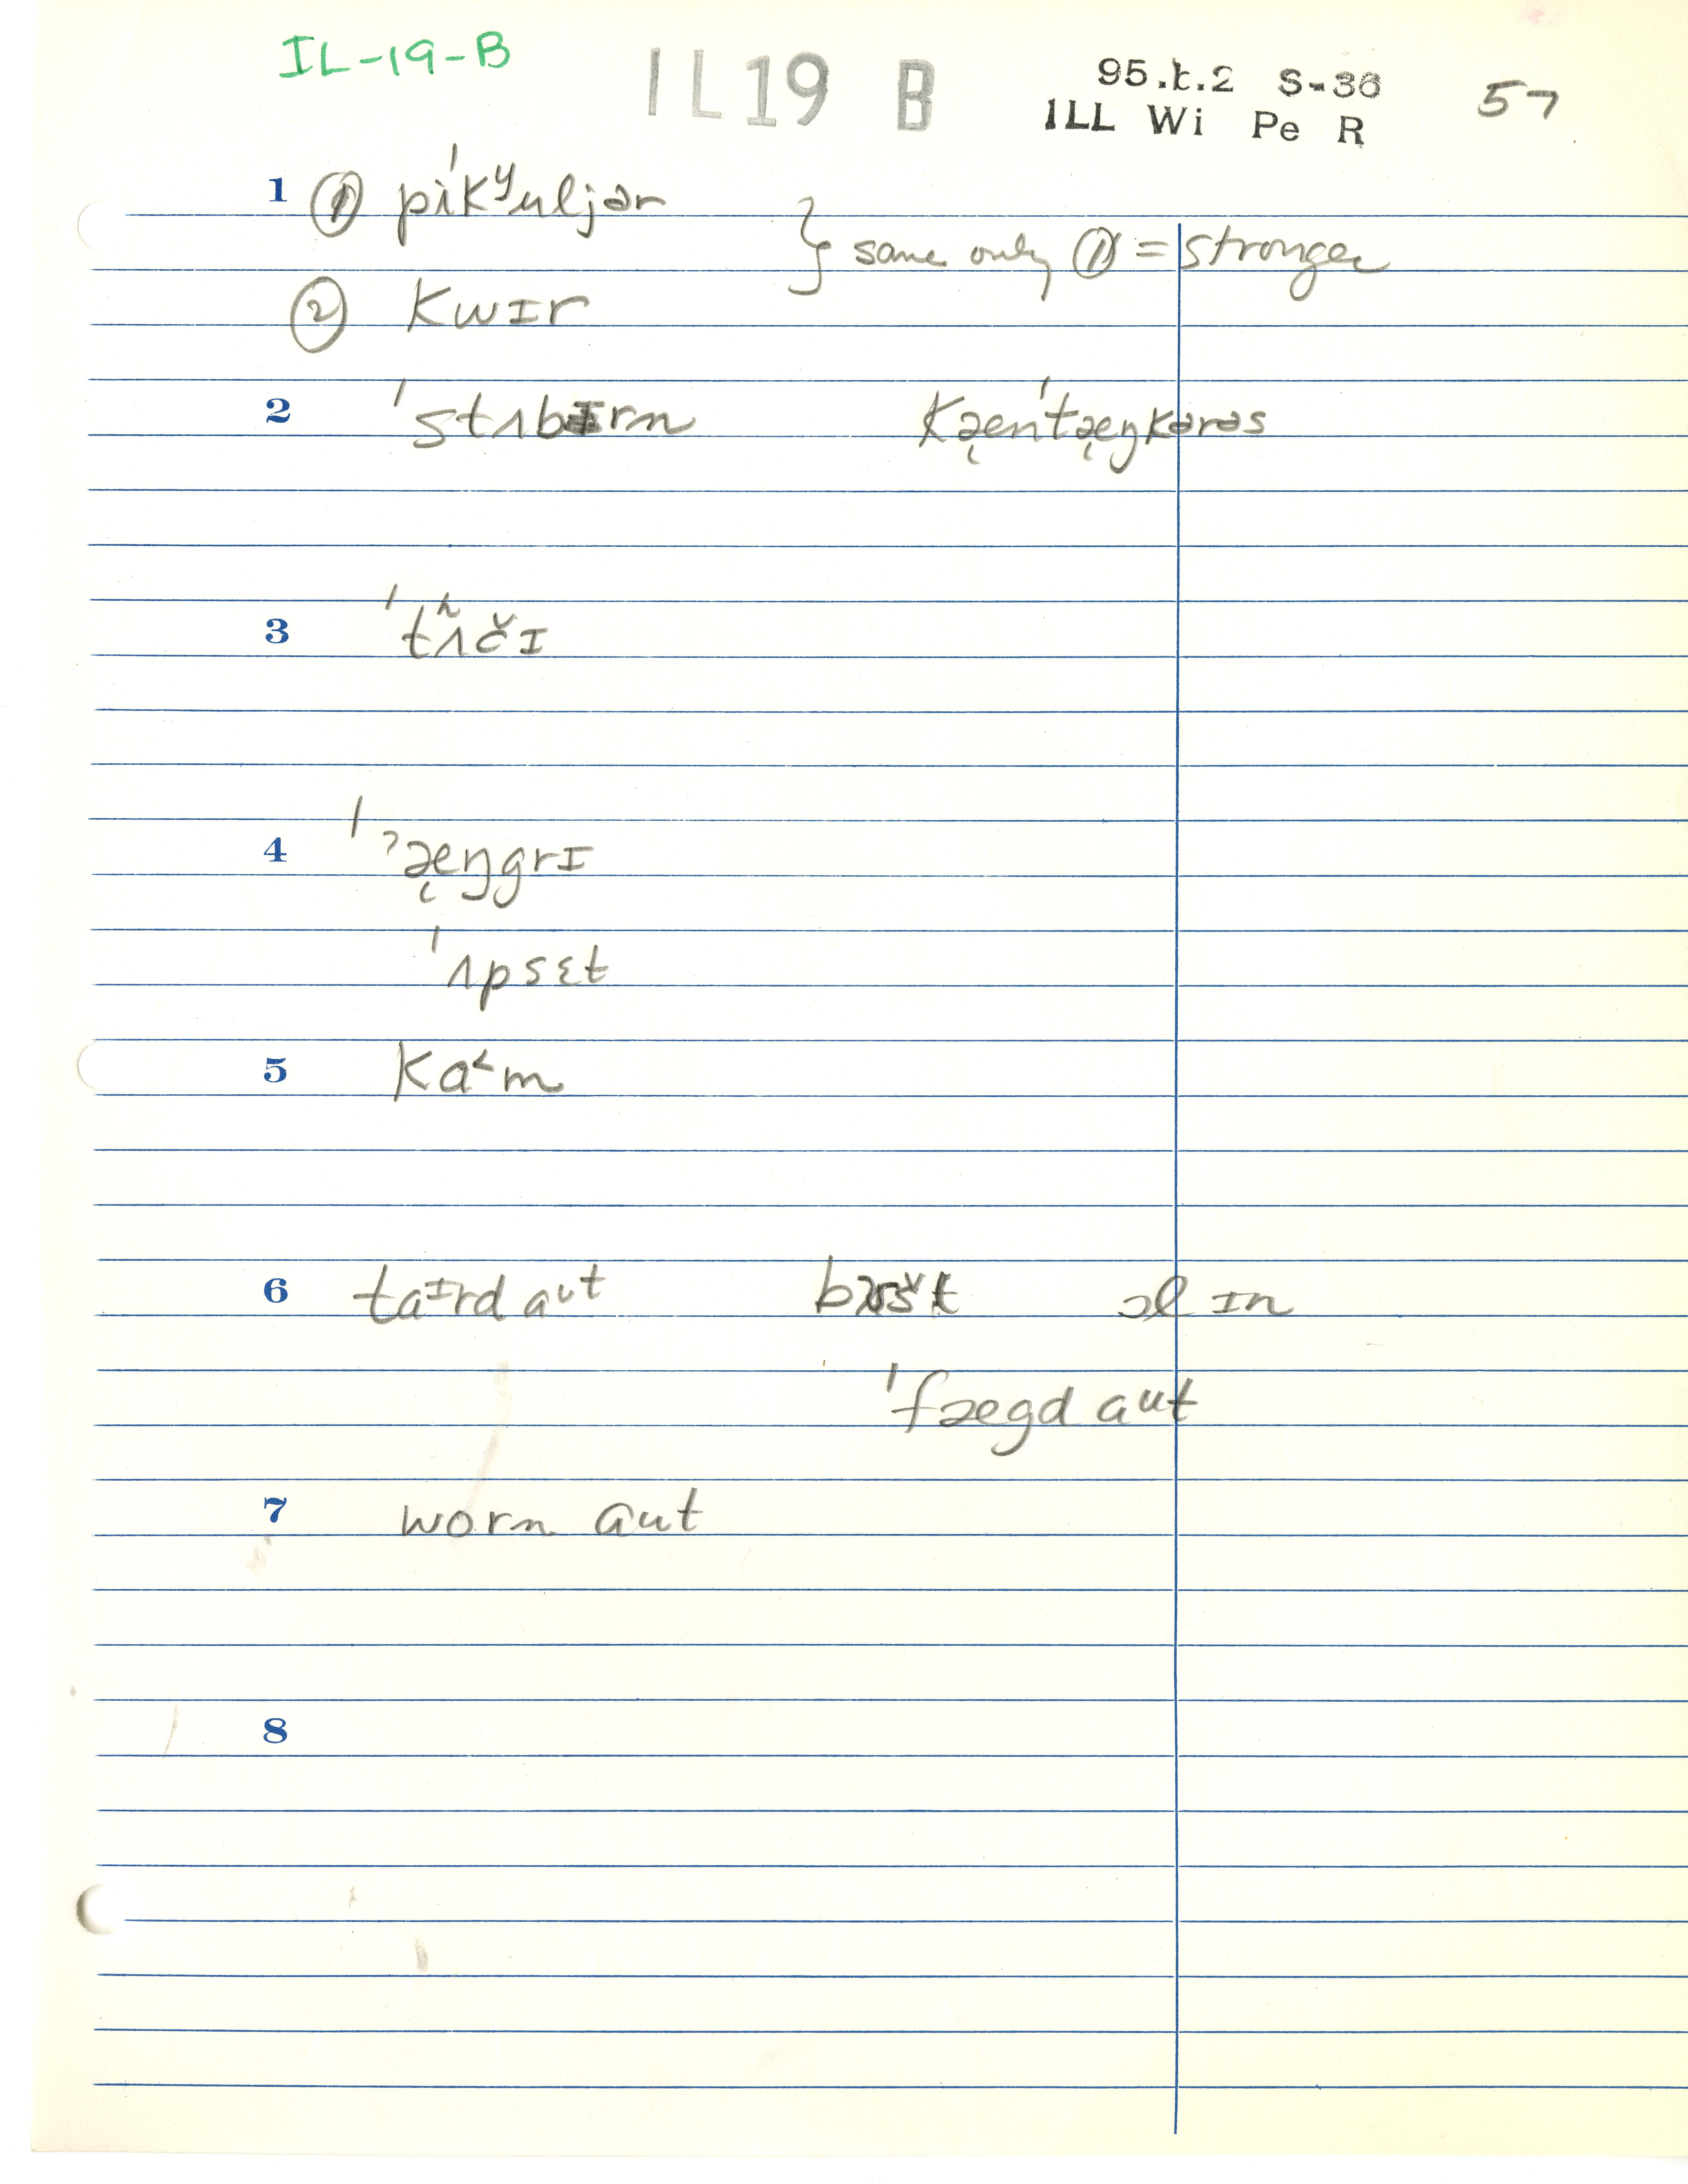 IL-19-B
IL19 B
95.k.2 S-36
57
ILL Wi Pe R
1 ① ˈpikʸuljər
} same only ① = stronger
② kwɪr
2 ˈstʌbɪrn ˌkæ̨nˈtæ̨ŋkərəs
3 ˈtʰʌčɪ
4 ˈʔæ̨ŋgrɪ
ˈʌpsɛt
5 ka˂m
6 taɪrd aᴜt ɔl ɪn
ˈfægd aᴜt
7 worn aut
8